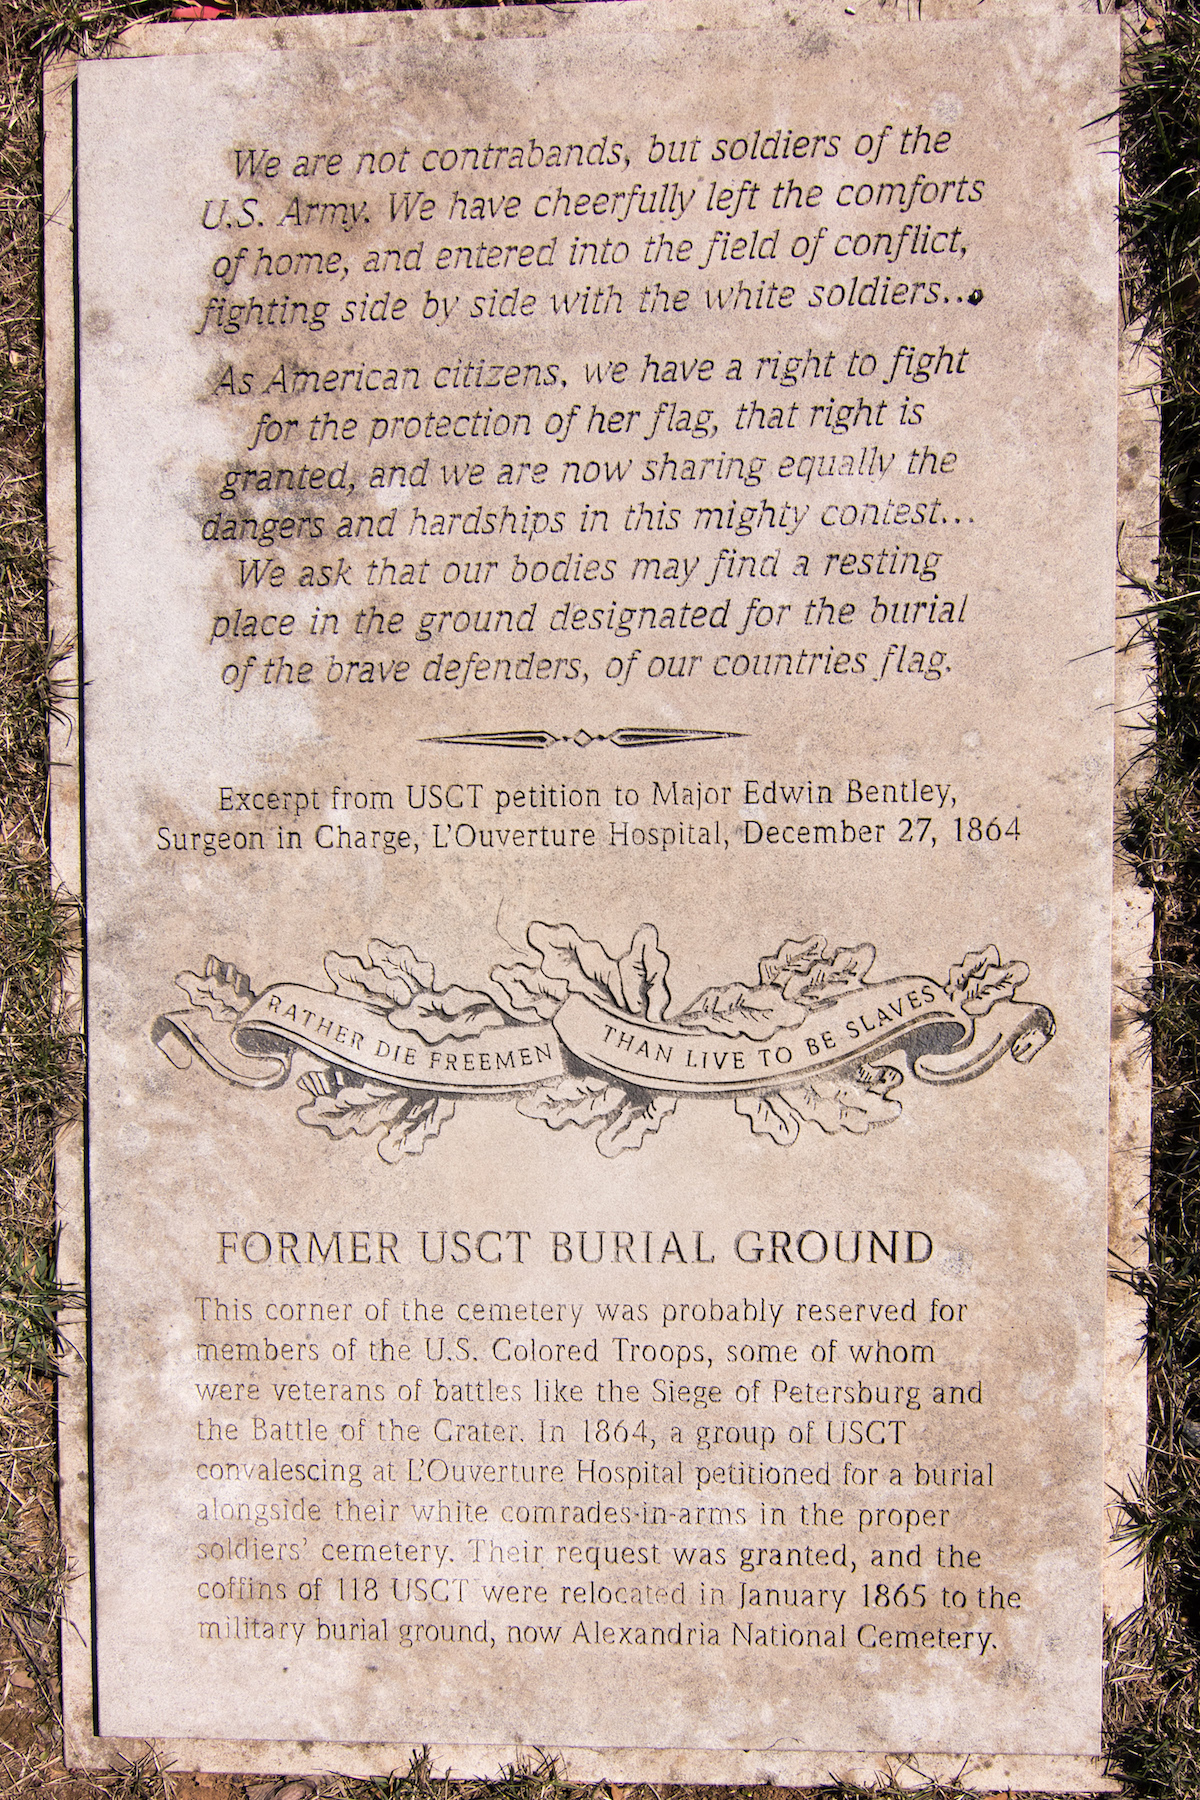 We are not contrabands, but soldiers of the
U.S. Army. We have cheerfully left the comforts
of home, and entered into the field of conflict,
fighting side by side with the white soldiers...
As American citizens, we have a right to fight
for the protection of her flag, that right is
granted, and we are now sharing equally the
dangers and hardships in this mighty contest...
We ask that our bodies may find a resting
place in the ground designated for the burial
of the brave defenders, of our countries flag.
Excerpt from USCT petition to Major Edwin Bentley,
Surgeon in Charge, L'Ouverture Hospital, December 27, 1864
RATHER DIE FREEMEN THAN LIVE TO BE SLAVES
FORMER USCT BURIAL GROUND
This corner of the cemetery was probably reserved for
members of the U.S. Colored Troops, some of whom
were veterans of battles like the Siege of Petersburg and
the Battle of the Crater. In 1864, a group of USCT
convalescing at L'Ouverture Hospital petitioned for a burial
alongside their white comrades-in-arms in the proper
soldiers' cemetery. Their request was granted, and the
coffins of 118 USCT were relocated in January 1865 to the
military burial ground, now Alexandria National Cemetery.